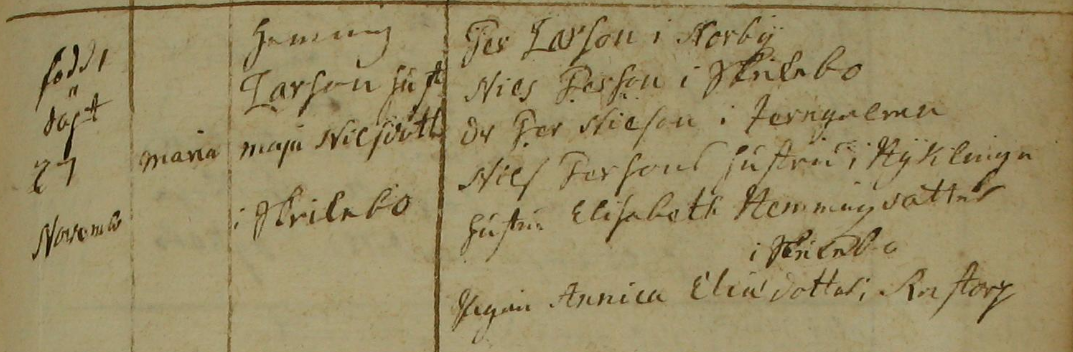 född
döpt
27
Novemb
maria
Hemming
Larson hust
maja Nilsdott
i Skrikebo
Per Larson i Norby
Nils Person i Skrikebo
dr Per Nilson i
Nils Persons hustru i Nyklinge
hustru Elisabeth Hemmingsdatter
i Skrikebo
Pigan Annica Eliædotter i